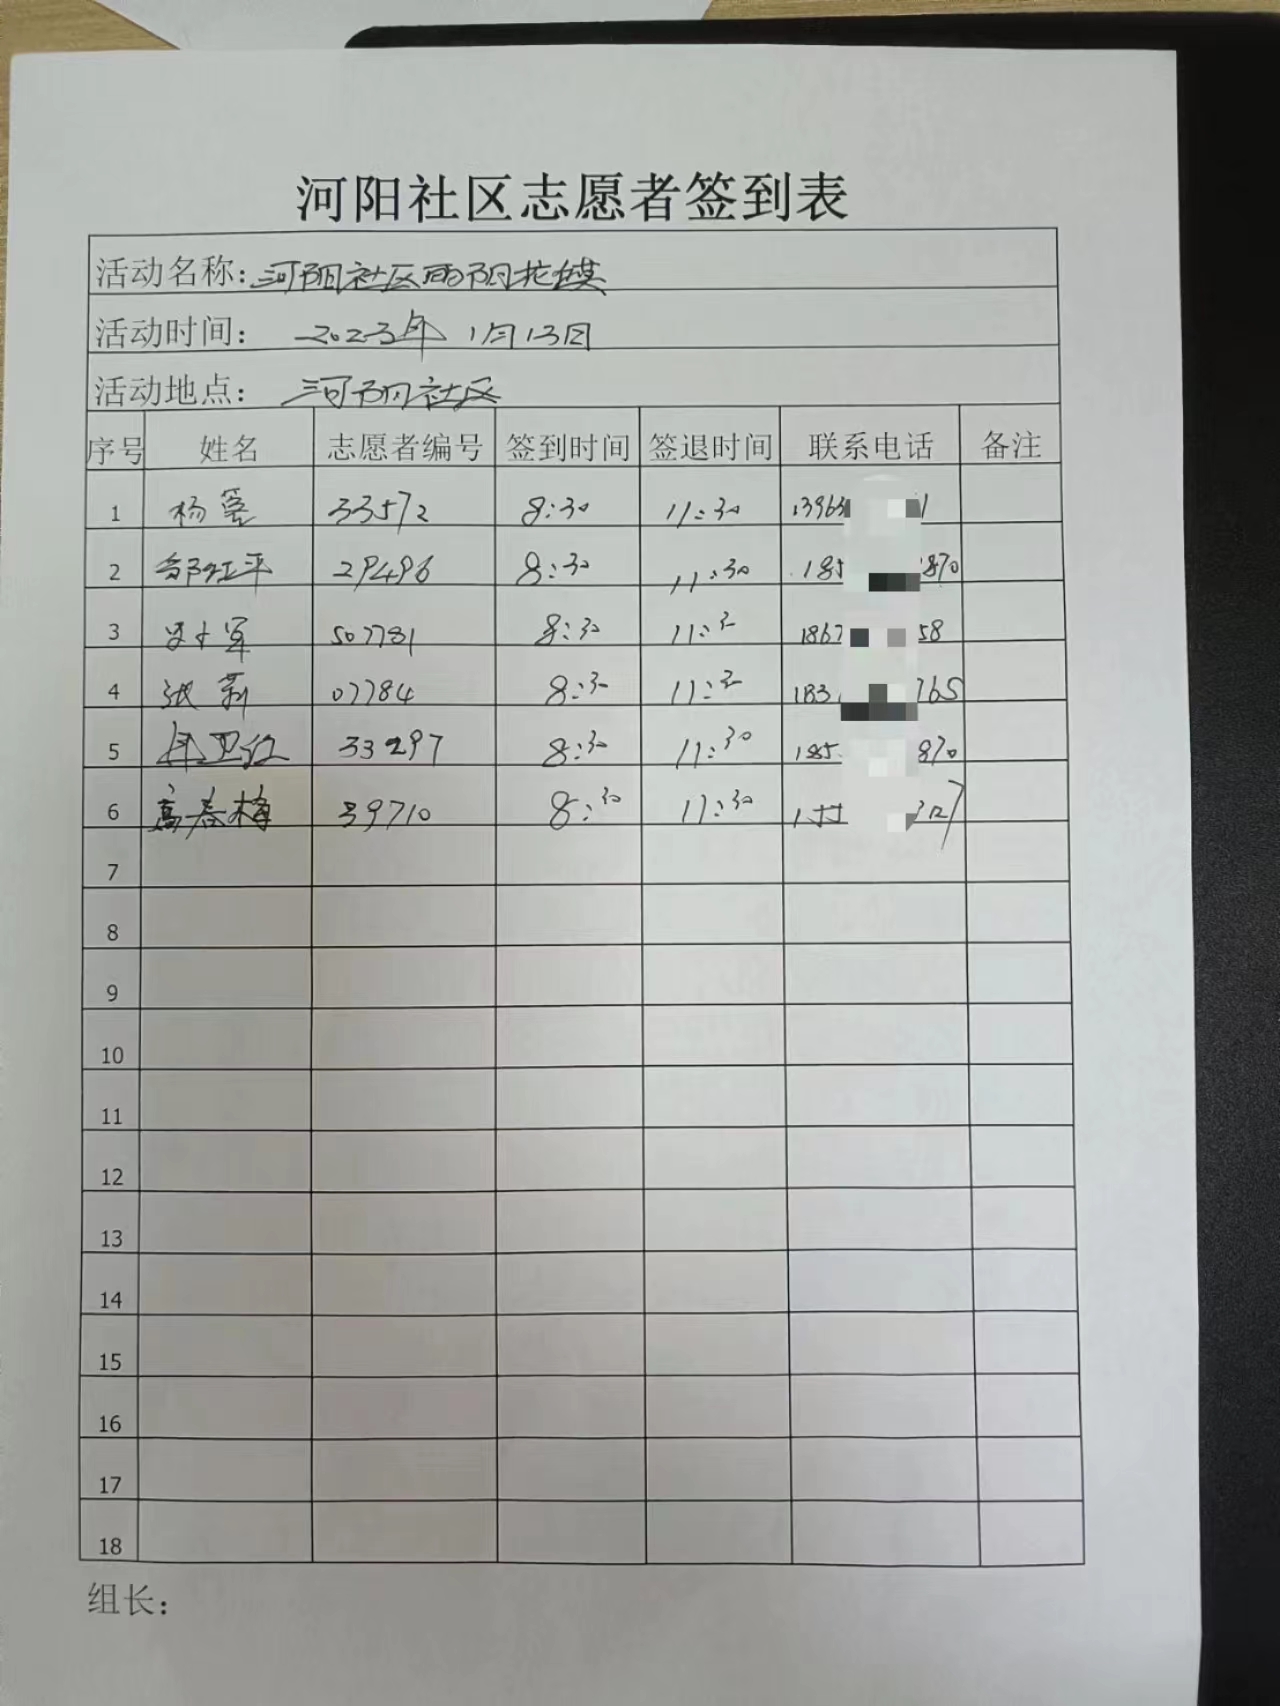 河阳社区志愿者签到表
活动名称：河阳社区
活动时间： 2023年 1月13日
活动地点： 河阳社区
序号 姓名 志愿者编号 签到时间 签退时间 联系电话 备注
1 杨 33572 8:30 11:30 1396 1
2 邹红平 29496 8:30 11:30 185 870
3 军 507781 8:30 11:30 1867 58
4 张莉 07784 8:30 11:30 183 765
5 卫红 33297 8:30 11:30 185 870
6 高春梅 39710 8:30 11:30 1 327
7
8
9
10
11
12
13
14
15
16
17
18
组长：